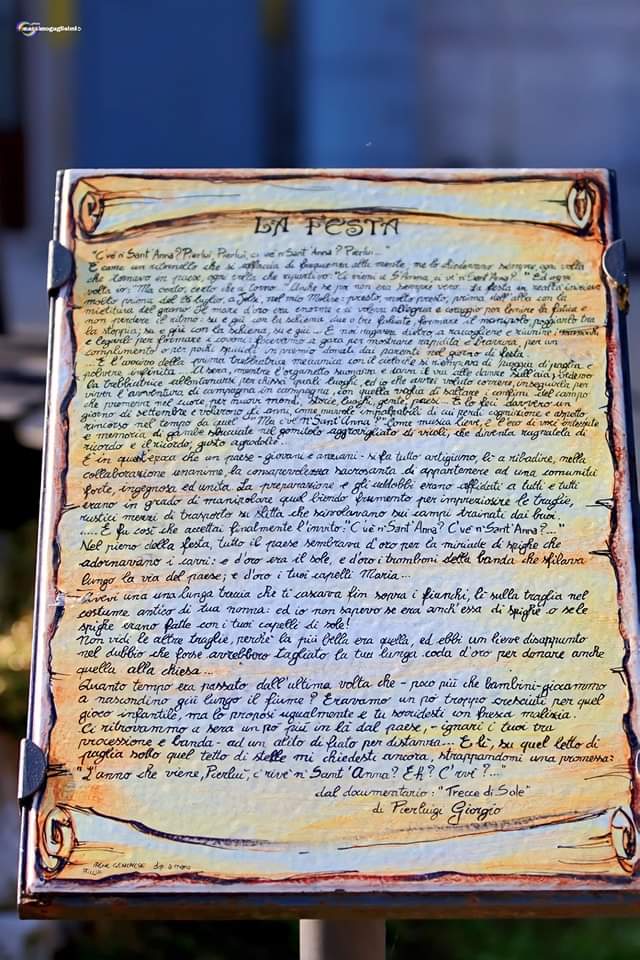 massimogugliotti
LA FESTA
"C'vè n'Sant'Anna? Pierluì, Pierluì, ci vè n'Sant'Anna? Pierluì..."
È come un ritornello che si affaccia di frequenza alla mente, me lo chiedevano sempre, ogni volta
che tornavo in paese, ogni volta che ripartivo: "Ci vieni a S. Anna, ci vè n'Sant'Anna?" Ed ogni
volta io: "Ma certo, certo che ci torno." Anche se poi non era sempre vero. La festa in realtà iniziava
molto prima del 26 luglio, a Jelsi, nel mio Molise: presto, molto presto, prima dell'alba con la
mietitura del grano. Il mare d'oro era enorme e ci voleva allegria e coraggio per lenire la fatica e
non perdere il ritmo: su e giù con la schiena due o tre falciate, formare il poggiarlo tra
la stoppia; su e giù con la schiena, su e giù... E noi ragazzi dietro a raccogliere e riunire i
e legarli per formare i covoni: facevamo a gara per mostrare rapidità e bravura, per un
complimento o per pochi spiccioli in premio donati dai parenti nel giorno di festa.
...E l'arrivo della prima trebbiatrice meccanica con il cielo che si riempiva di pagliuzze e
polvere infinita. A sera, mentre l'organetto suonava e dava il via alle danze sull'aia, vedevo
la trebbiatrice allontanarsi per chissà quali luoghi, ed io che avrei voluto correre, inseguirla per
vivere l'avventura di campagna in campagna, con quella voglia di saltare i confini del campo
che premeva nel cuore per nuovi mondi, storie, luoghi, gente, paesi. E lo feci davvero un
giorno di settembre e volarono gli anni, come nuvole impalpabili di cui perdi cognizione e aspetto
rincorso nel tempo da quel: "Ma c'vè n'Sant'Anna?" Come musica lieve, è l'eco di voci
e memoria di gambe sbucciate nel gomitolo aggrovigliato di vicoli, che diventa rugiadela di
ricordo e il ricordo, gusto agrodolce.
È in quest'epoca che un paese - giovani e anziani - si fa tutto artigiano, lì a ribadire, nella
collaborazione unanime, la consapevolezza sacrosanta di appartenere ad una comunità
forte, ingegnosa ed unita. La preparazione e gli addobbi erano affidati a tutti e tutti
erano in grado di manipolare quel biondo frumento per impreziosire le traglie,
rustici mezzi di trasporto su slitta che scivolavano sui campi trainati dai buoi.
.....E fu così che accettai finalmente l'invito: "C'vè n'Sant'Anna? C'vè n'Sant'Anna?..."
Nel pieno della festa, tutto il paese sembrava d'oro per la miriade di spighe che
adornavano i carri: e d'oro era il sole, e d'oro i tromboni della banda che sfilava
lungo la via del paese; e d'oro i tuoi capelli Maria...
Avevi una una lunga treccia che ti cascava fin sopra i fianchi, lì sulla traglia nel
costume antico di tua nonna: ed io non sapevo se era anch'essa di spighe o se le
spighe erano fatte con i tuoi capelli di sole!
Non vidi le altre traglie, perché la più bella era quella, ed ebbi un lieve disappunto
nel dubbio che forse avrebbero tagliato la tua lunga coda d'oro per donare anche
quella alla chiesa...
Quanto tempo era passato dall'ultima volta che - poco più che bambini - giocammo
a nascondino giù lungo il fiume? Eravamo un po' troppo cresciuti per quel
gioco infantile, ma lo proposi ugualmente e tu sorridesti con fresca malizia.
Ci ritrovammo a sera un po' più in là dal paese, - ignari i tuoi tra
processione e banda - ad un alito di fiato per distanza... E lì, su quel letto di
paglia sotto quel tetto di stelle mi chiedesti ancora, strappandomi una promessa:
"L'anno che viene, Pierluì, c'rivè n'Sant'Anna? Eh? C'rvè?..."
dal documentario: "Trecce di Sole"
di Pierluigi Giorgio